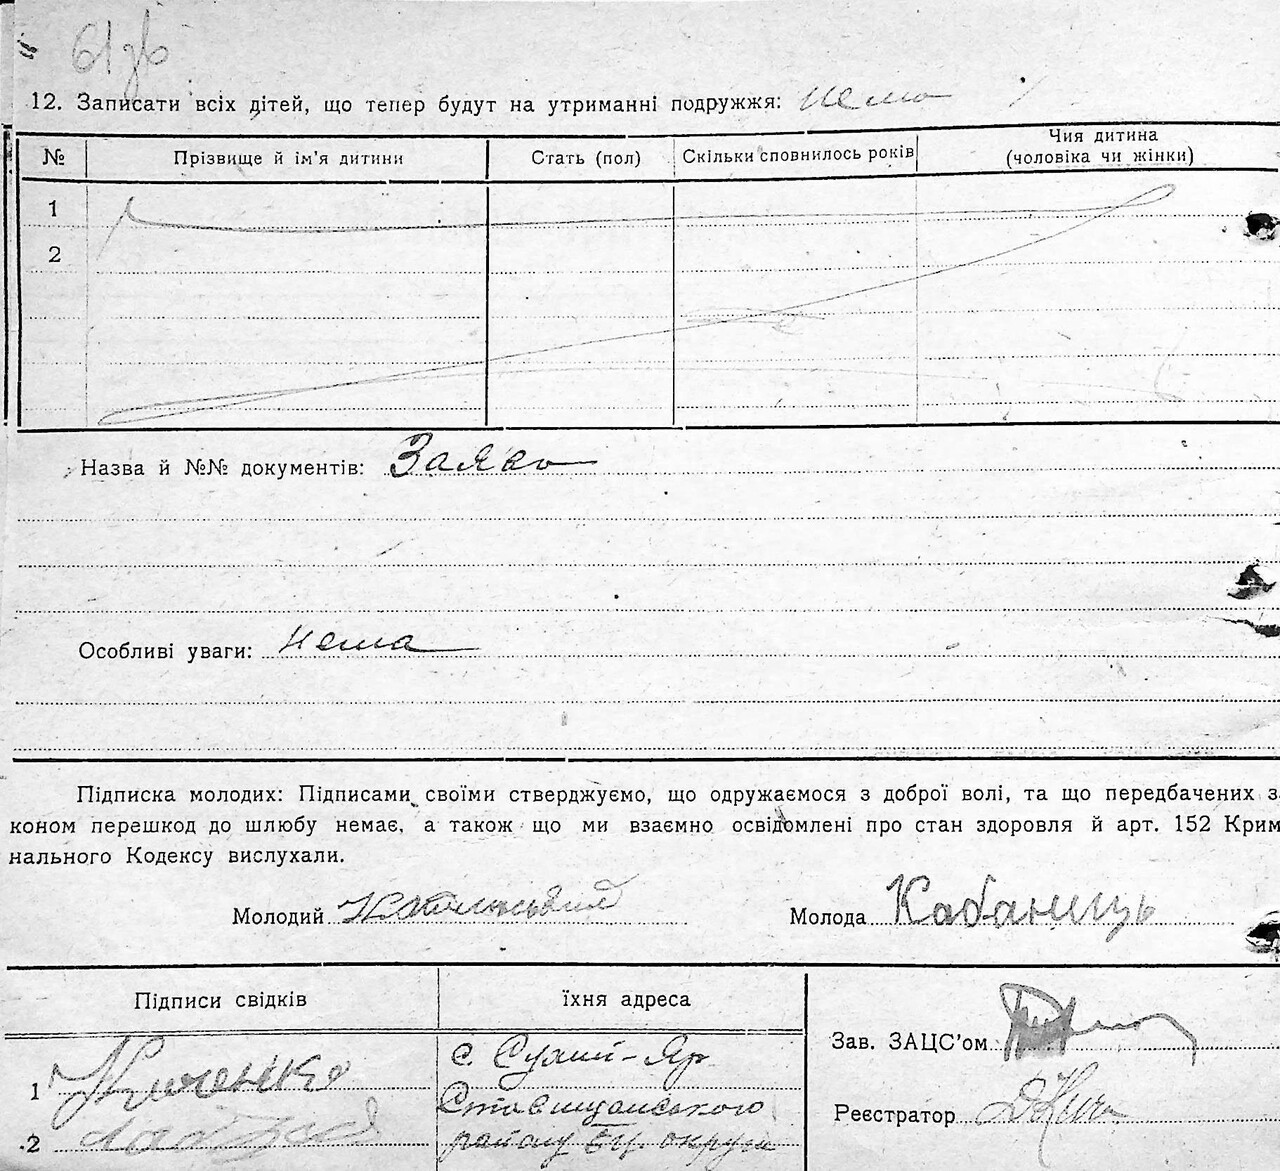 61зв
12. Записати всіх дітей, що тепер будут на утриманні подружжя: нема
№ Прізвище й ім'я дитини Стать (пол) Скільки сповнилось років Чия дитина
(чоловіка чи жінки)
1
2
Назва й №№ документів: Заява
Особливі уваги: нема
Підписка молодих: Підписами своїми стверджуємо, що одружаємося з доброї волі, та що передбачених з
коном перешкод до шлюбу немає, а також що ми взаємно освідомлені про стан здоровля й арт. 152 Крим
нального Кодексу вислухали.
Молодий Молода Кабанець
Підписи свідків їхня адреса
Зав. ЗАЦС'ом
1 с. Сухий-Яр
Ставищанського
Реєстратор
2 району БЦ округи